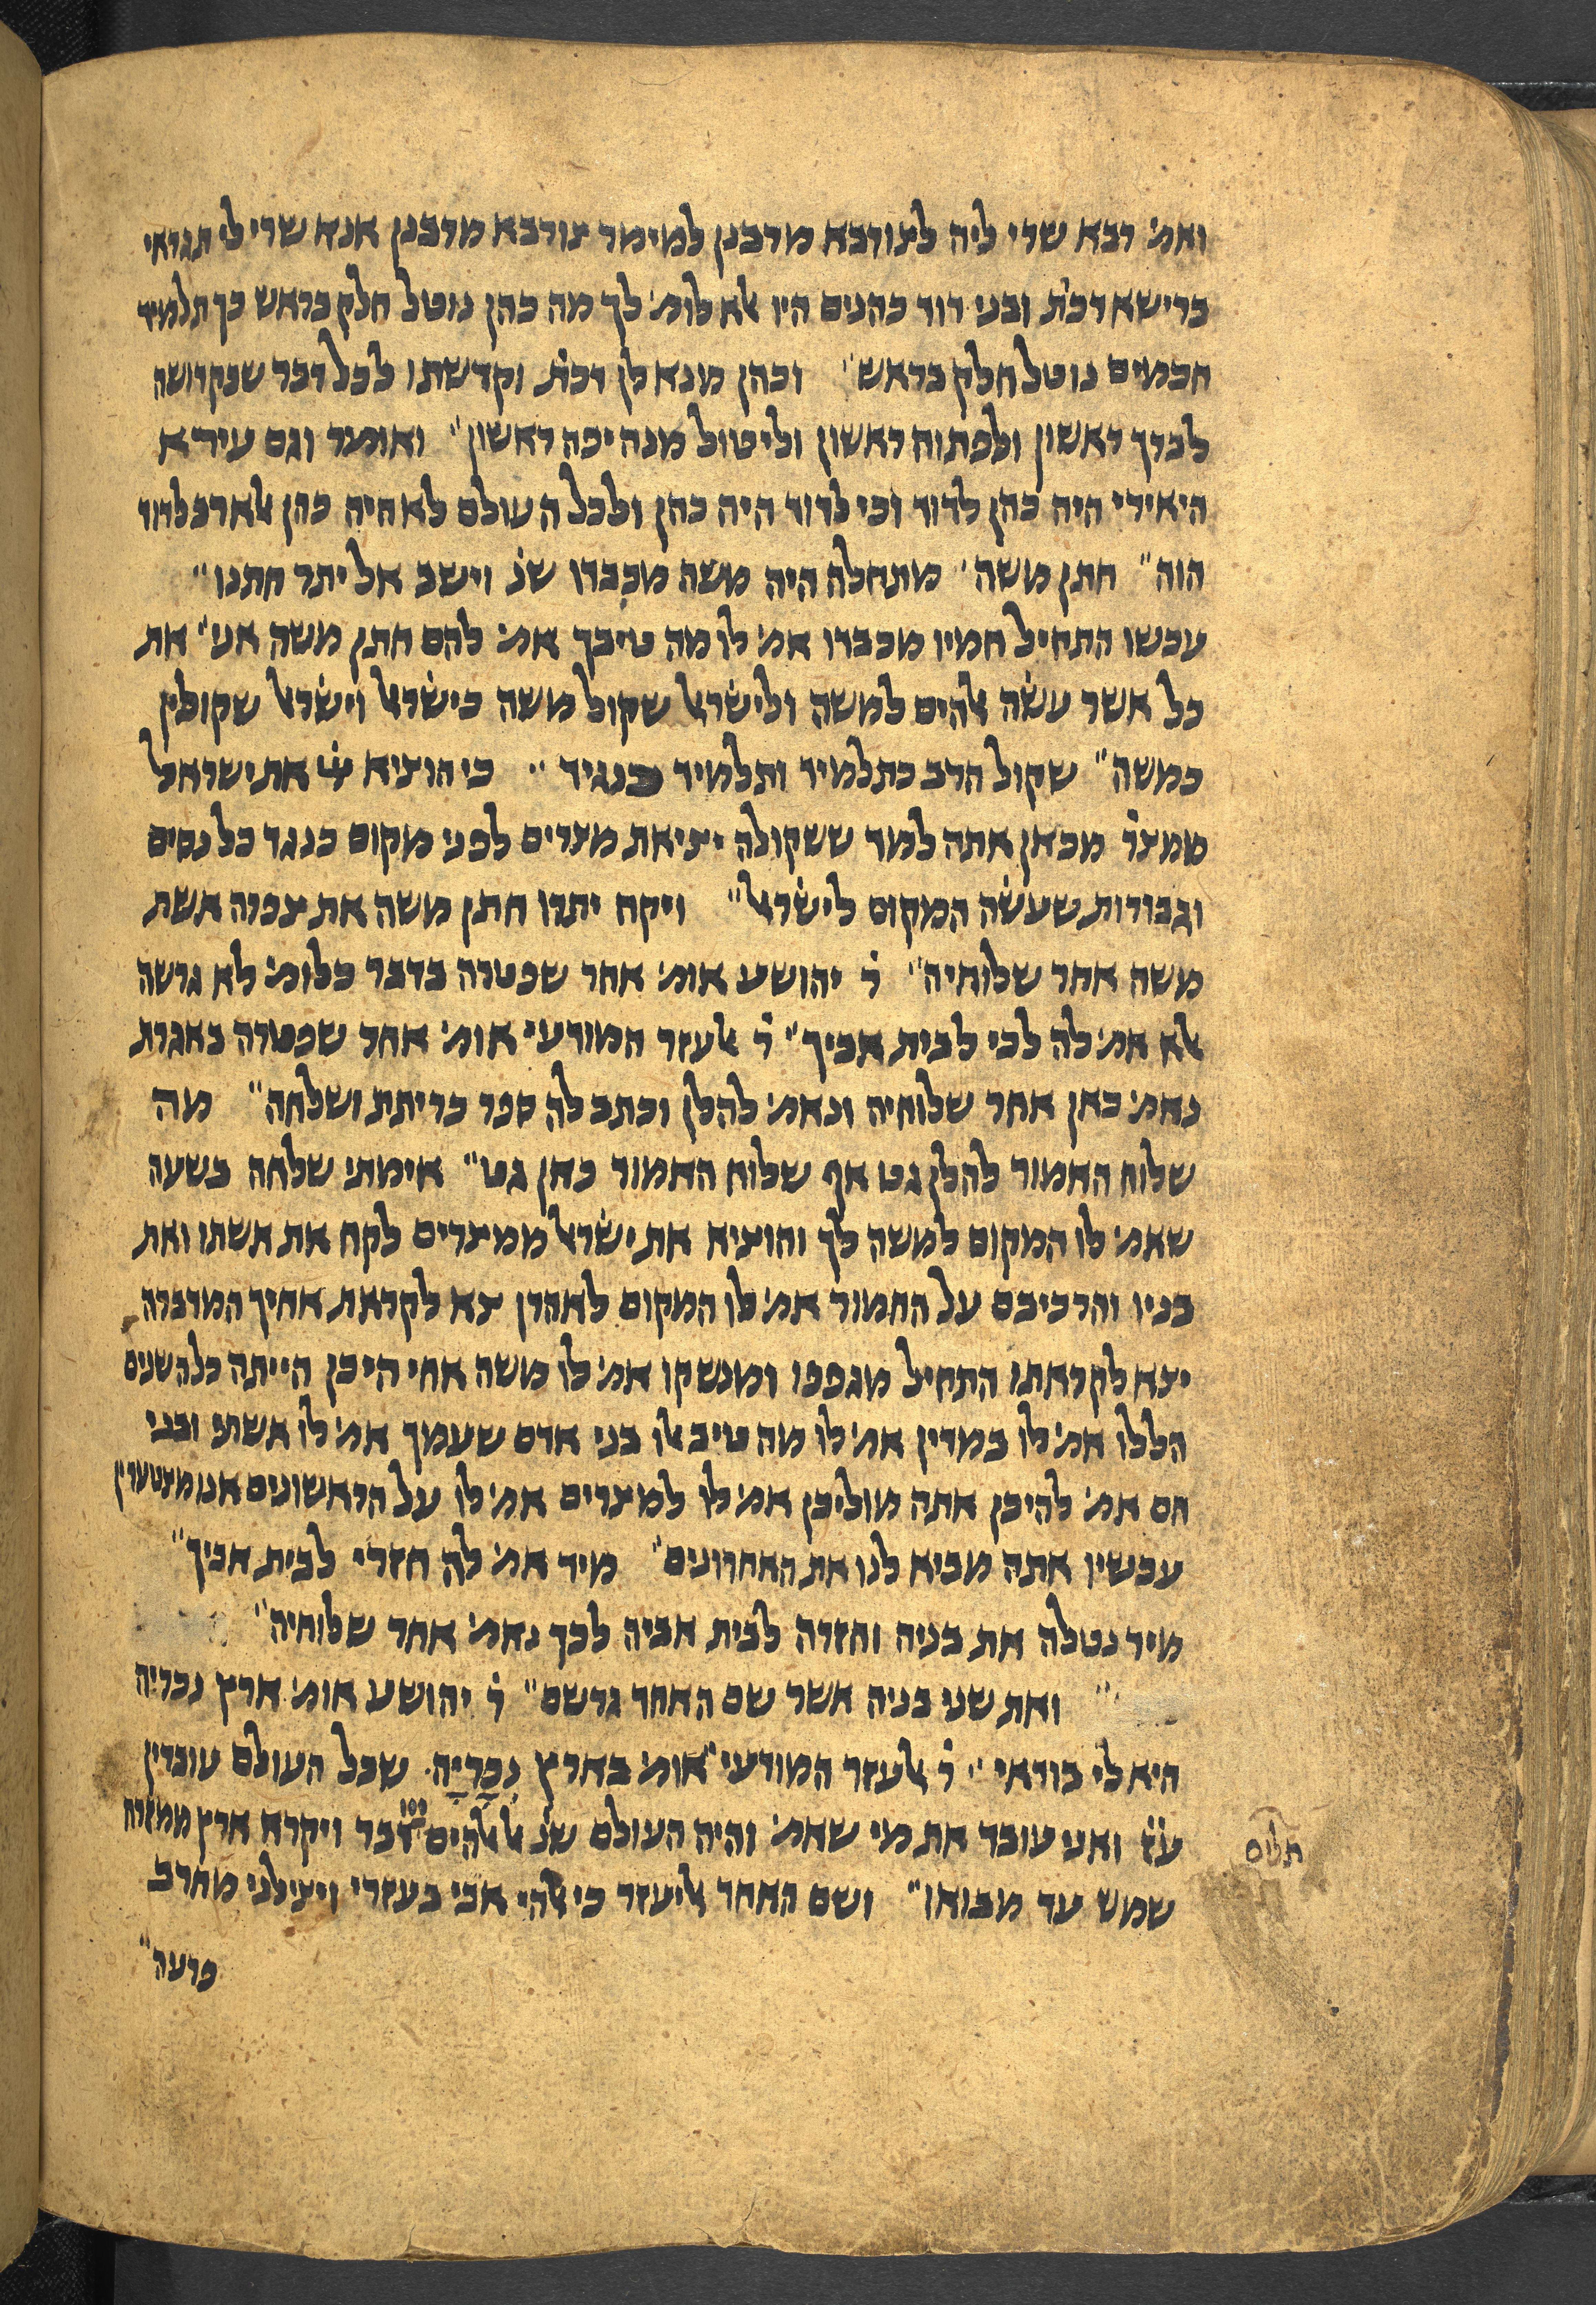 ואמ׳ רבא שרי ליה לצורבא מרבנן למימר צורבא מרבנן אנא שרי לי תגראי
ברישא דכת׳ ובני דוד כהנים היו אלא לומ׳ לך מה כהן נוטל חלק בראש כך תלמיד
חכמים נוטל חלק בראש׳׳ וכהן מנא לן דכת׳ וקדשתו לכל דבר שבקדושה
לברך ראשון ולפתוח ראשון וליטול מנה יפה ראשון׳׳ ואומר וגם עירא
היאירי היה כהן לדוד וכי לדוד היה כהן ולכל העולם לא היה כהן אלא רב לדוד
הוה׳׳ חתן משה׳ מתחלה היה משה מכבדו שנ׳ וישב אל יתר חתנו׳׳
עכשו התחיל חמיו מכבדו אמ׳ לו מה טיבך אמ׳ להם חתן משה אני׳׳ את
כל אשר עשה אלהים למשה ולישראל שקול משה כישראל וישראל שקולין
כמשה׳׳ שקול הרב כתלמיד ותלמיד כנגיד׳׳ כי הוציא יי׳ את ישראל
ממצר׳ מכאן אתה למד ששקולה יציאת מצרים לפני מקום כנגד כל נסים
וגבורות שעשה המקום לישראל׳׳ ויקח יתרו חתן משה את צפרה אשת
משה אחר שלוחיה׳׳ ר׳ יהושע אומ׳ אחר שפטרה בדבר כלומ׳ לא גרשה
אלא אמ׳ לה לכי לבית אביך׳׳ ר׳ אלעזר המודעי אומ׳ אחר שפטרה באגרת
נאמ׳ כאן אחר שלוחיה ונאמ׳ להלן וכתב לה ספר כריתת ושלחה׳׳ מה
שלוח האמור להלן גט אף שלוח האמור כאן גט׳׳ אימתי שלחה בשעה
שאמ׳ לו המקום למשה לך והוציא את ישראל ממצרים לקח את אשתו ואת
בניו והרכיבם על החמור אמ׳ לו המקום לאהרן צא לקראת אחיך המדברה
יצא לקראתו התחיל מגפפו ומנשקו אמ׳ לו משה אחי היכן הייתה כל השנים
הללו אמ׳ לו במדין אמ׳ לו מה טיב אלו בני אדם שעמך אמ׳ לו אשתי ובני
הם אמ׳ להיכן אתה מוליכן אמ׳ לו למצרים אמ׳ לו על הראשונים אנו מצטערין
עכשיו אתה מביא לנו את האחרונים׳׳ מיד אמ׳ לה חזרי לבית אביך׳׳
מיד נטלה את בניה וחזרה לבית אביה לכך נאמ׳ אחר שלוחיה׳׳
׳׳ ואת שני בניה אשר שם האחד גרשם׳׳ ר׳ יהושע אומ׳ ארץ נכריה
היא לי בודאי׳׳ ר׳ אלעזר המודעי אומ׳ בארץ נכריה׳ שכל העולם עובדין
ע׳ז׳ ואני עובד את מי שאמ׳ והיה העולם שנ׳ אל אלהים ייי דבר ויקרא ארץ ממזרח
תלים
שמש עד מבואו׳׳ ושם האחד אליעזר כי אלהי אבי בעזרי ויצילני מחרב
פרעה׳׳